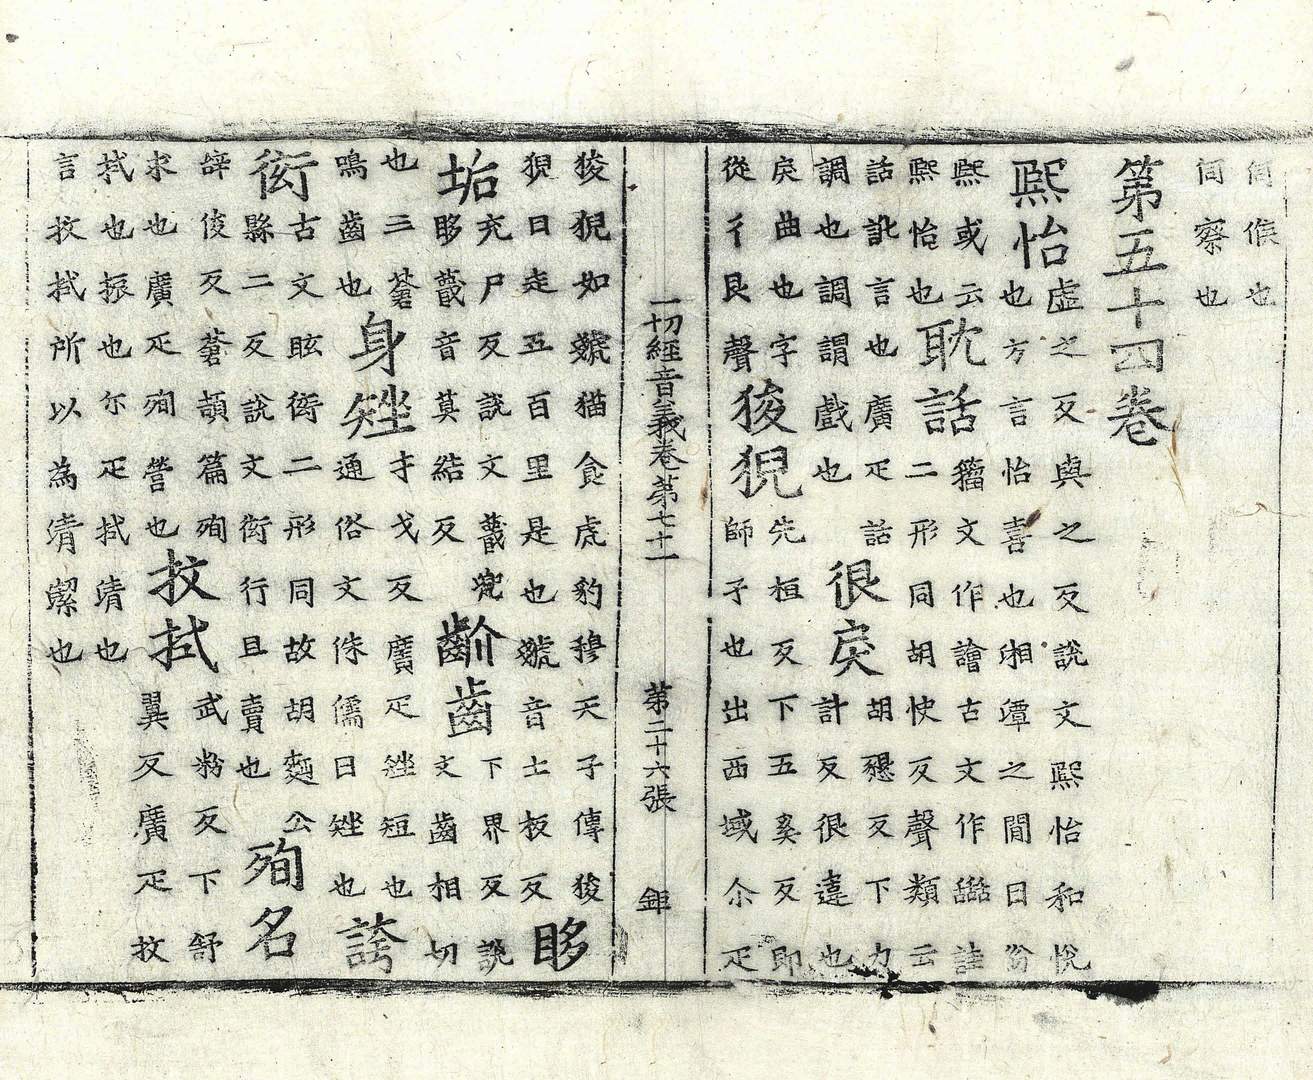 伺候也
伺察也
第五十四卷
熈怡虛之反與之反說文熈怡和悅
也方言怡喜也湘潭之閒曰紛
熈或云
熈怡也耽話籀文作譮古文作詿
二形同胡快反聲類云
話訛言也廣疋話
調也調謂戲也佷戾胡懇反下力
計反佷違也
戾曲也字
從彳艮聲狻猊先桓反下五奚反即
師子也出西域尒疋
一切經音義卷第七十一 第二十六張 鉅
狻猊如虥猫食虎豹穆天子傳狻
猊日走五百里是也虥音士板反眵
垢充尸反說文䁾兠
眵䁾音莫結反齘齒下界反說
文齒相切
也三蒼
鳴齒也身矬才戈反廣疋矬短也
通俗文侏儒曰矬也誇
衒古文眩衒二形同故胡麪公
縣二反說文衒行且賣也殉名
辝俊反蒼頡篇殉
求也廣疋殉營也抆拭武粉反下舒
翼反廣疋抆
拭也振也尒疋拭清也
言抆拭所以為清絜也